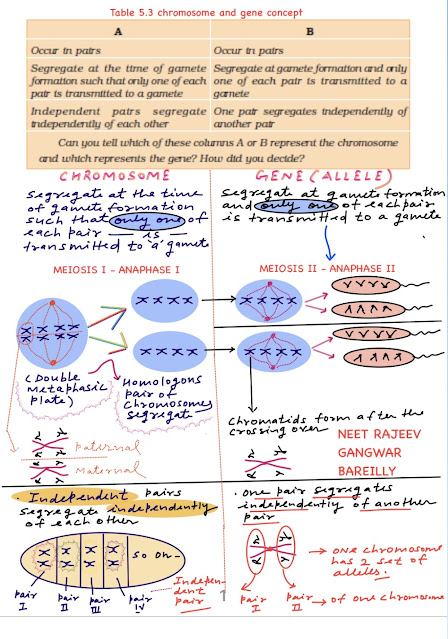 Table 5.3 chromosome and gene concept
A
B
Occur in pairs
Occur in pairs
Segregate at the time of gamete
formation such that only one of each
pair is transmitted to a gamete
Segregate at gamete formation and only
one of each pair is transmitted to a
gamete
Independent pairs segregate
independently of each other
One pair segregates independently of
another pair
Can you tell which of these columns A or B represent the chromosome
and which represents the gene? How did you decide?
CHROMOSOME
Segregate at the time
of gamete formation
such that only one of
each pair is
transmitted to 'a' gamete
GENE (ALLELE)
Segregate at gamete formation
and only one of each pair
is transmitted to a gamete
MEIOSIS I - ANAPHASE I
MEIOSIS II - ANAPHASE II
(Double
Metaphasic
plate)
Homologous
pair of
Chromosomes
Segregate
Paternal
Maternal
Chromatids form after the
crossing over
NEET RAJEEV
GANGWAR
BAREILLY
Independent pairs
Segregate independently
of each other
so on-
pair
I
pair
II
pair
III
pair
IV
Indepen-
dent
pair
1
• One pair segregates
independently of another
pair
→ one chromosome
has 2 set of
alleles.
pair
I
pair
II
→ of one chromosome